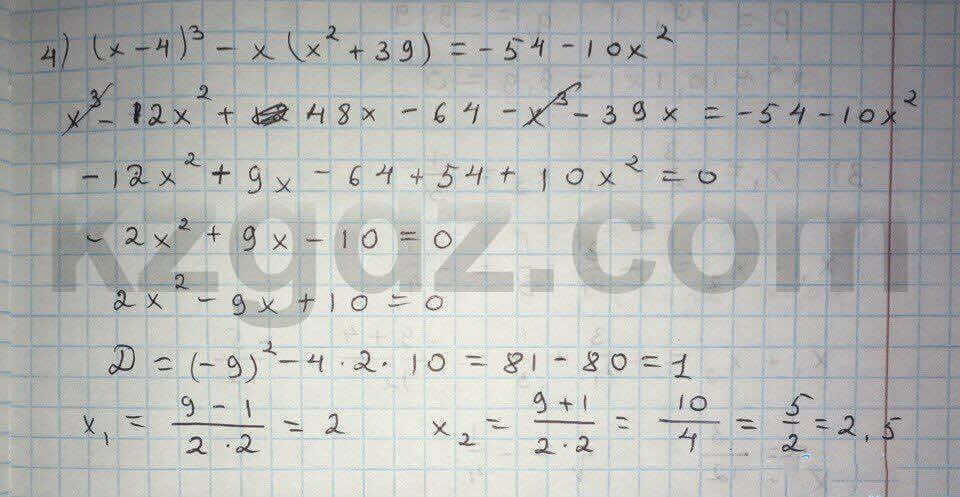 4) (x-4)³ - x(x² + 39) = -54 - 10x²
x³ - 12x² + 48x - 64 - x³ - 39x = -54 - 10x²
-12x² + 9x - 64 + 54 + 10x² = 0
- 2x² + 9x - 10 = 0
kzgdz.com
2x² - 9x + 10 = 0
D = (-9)² - 4 · 2 · 10 = 81 - 80 = 1
x₁ = (9 - 1)/(2 · 2) = 2 x₂ = (9 + 1)/(2 · 2) = 10/4 = 5/2 = 2,5